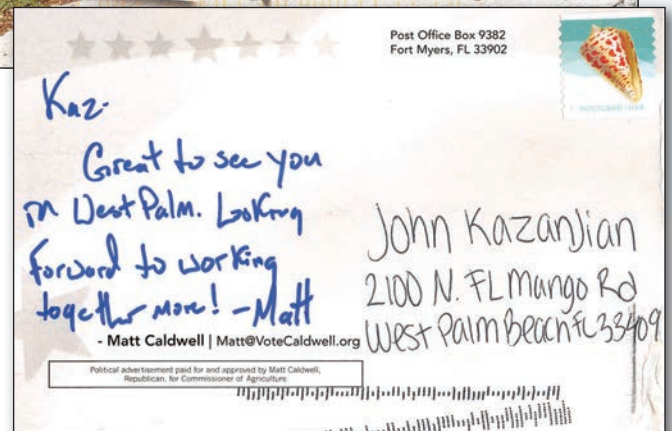 Post Office Box 9382
Fort Myers, FL 33902
Kaz-
Great to see you
in West Palm. Looking
forward to working
together more! -Matt
- Matt Caldwell | Matt@VoteCaldwell.org
Political advertisement paid for and approved by Matt Caldwell,
Republican, for Commissioner of Agriculture
John Kazanjian
2100 N. FL Mango Rd
West Palm Beach FL 33409